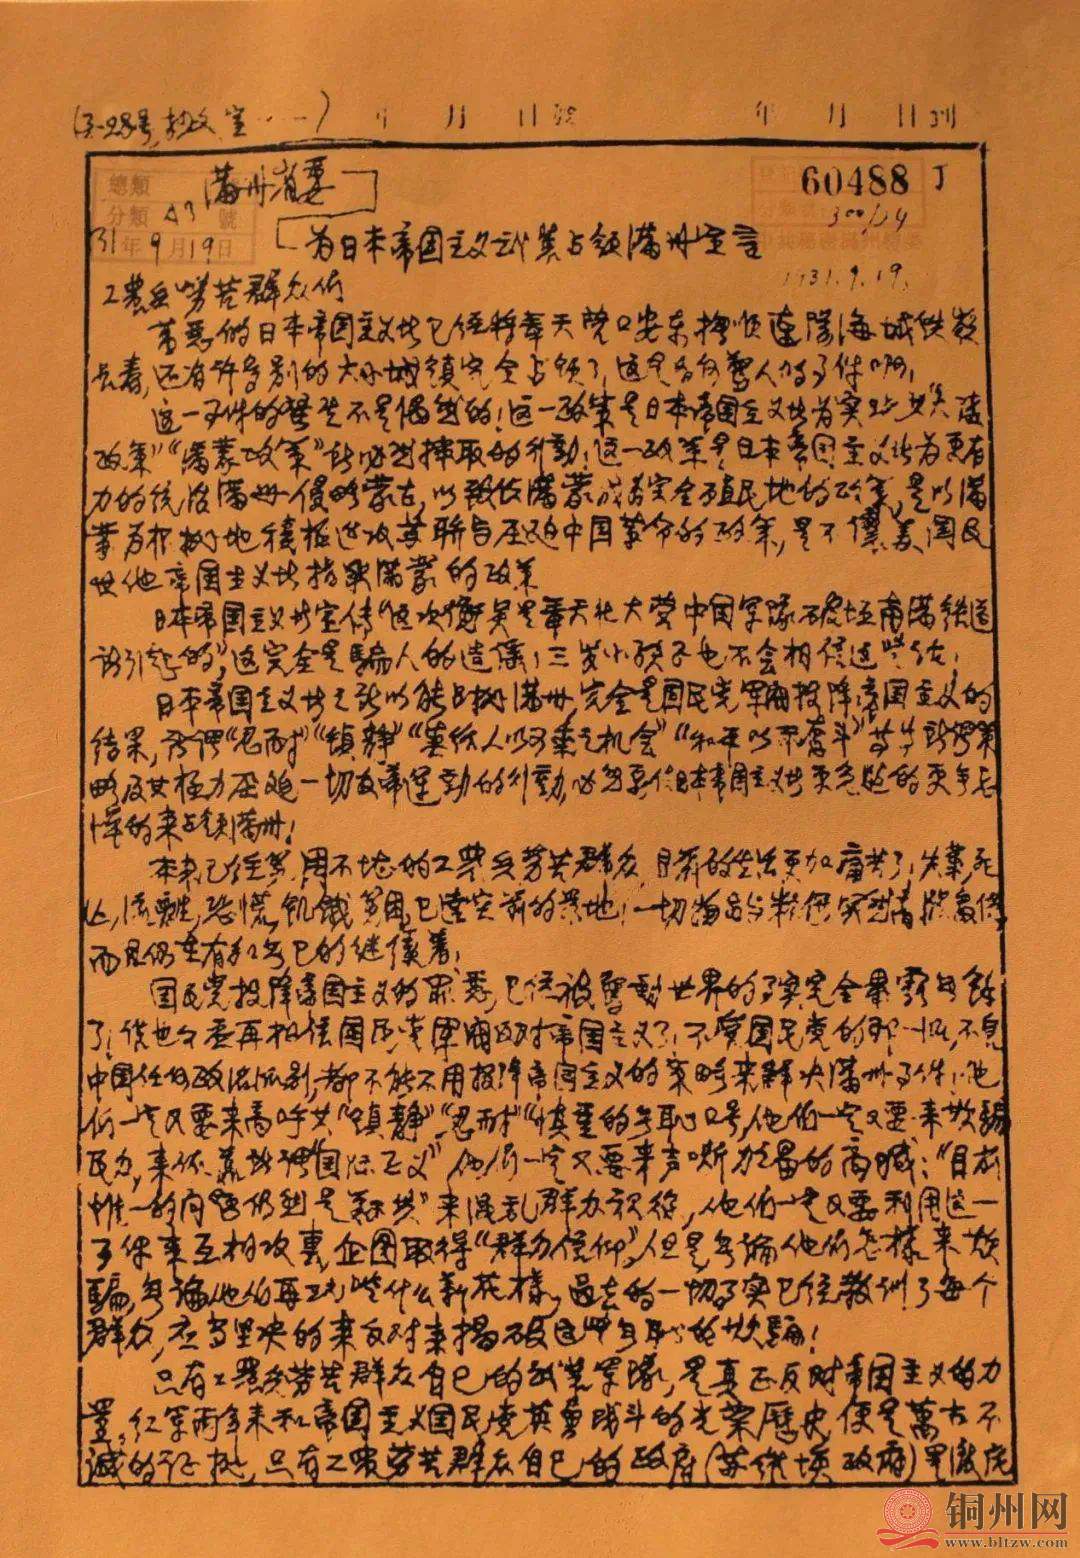 年 月 日 年 月 日到
满州省委
60488 J
总类
分类 A3 號
31年9月19日
为日本帝国主义武装占领满州宣言
1931.9.19.
工农兵劳苦群众们
万恶的日本帝国主义者已经将奉天营口安东抚顺辽阳海城铁岭
长春,还有许多别的大小城镇完全占领了,这是多么惊人的事件啊!
这一事件的发生不是偶然的!这一政策是日本帝国主义者为实现其"大陆
政策""满蒙政策"所必然采取的行动!这一政策是日本帝国主义者为更有
力的统治满州,侵略蒙古,以致使满蒙成为完全殖民地的政策,是以满
蒙为根据地积极进攻苏联与压迫中国革命的政策,是不讓美国及
其他帝国主义者指染满蒙的政策
日本帝国主义者宣传"这次冲突是奉天北大营中国军队破坏南满铁道
所引起的",这完全是骗人的造谣,三岁小孩子也不会相信这些话!
日本帝国主义者之所以能占据满州,完全是国民党军阀投降帝国主义的
结果,所谓"忍耐""镇静""莫给人以可乘之机会""和平以不奋斗"等等
略及其极力压迫一切反帝运动的行动,必然要使日本帝国主义者更
的来占领满州!
本来已经穷困不堪的工农兵劳苦群众,目前的生活更加痛苦了!失业死
亡,流离,恐慌,饥饿穷困,已达空前的
而且仍在有加无已的继续着!
国民党投降帝国主义的罪恶,已经被惊动世界的事实完全暴露无余
了!谁也不要再相信国民党军阀反对帝国主义了!不管国民党的那一派,不管
中国任何政治派别,都不能不用投降帝国主义的策略来解决满州事件!他
们一定又要来高呼其"镇静""忍耐""慎重"的无耻口号,他们一定又要来欺骗
民众,来依靠所谓"国际正义",他们一定又要来声嘶力竭的高喊:"目前
惟一的问题仍然是剿共"来混乱群众视线,他们一定又要利用这一
事件来互相攻袭,企图取得"群众信仰",但是无论他们怎样来欺
骗,无论他们再玩些什么新花样,过去的一切事实已经教训了每个
群众,应当坚决的来反对来揭破这些无耻的欺骗!
只有工农兵劳苦群众自己的武装军队,是真正反对帝国主义的力
量,红军两年来和帝国主义国民党英勇战斗的光荣歷史,便是萬古不
灭的证据,只有工农劳苦群众自己的政府(苏维埃政府)是彻底
铜州网
www.bltzw.com